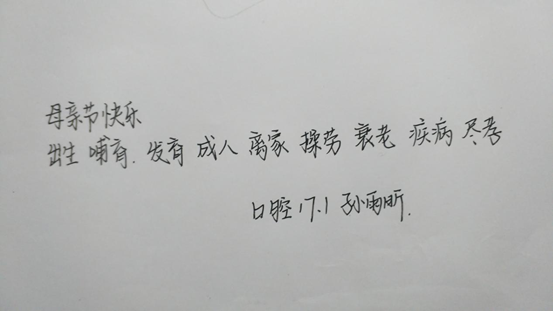 母亲节快乐
出生 哺育. 发育 成人 离家 操劳 衰老 疾病 尽孝
口腔17.1 孙雨昕.